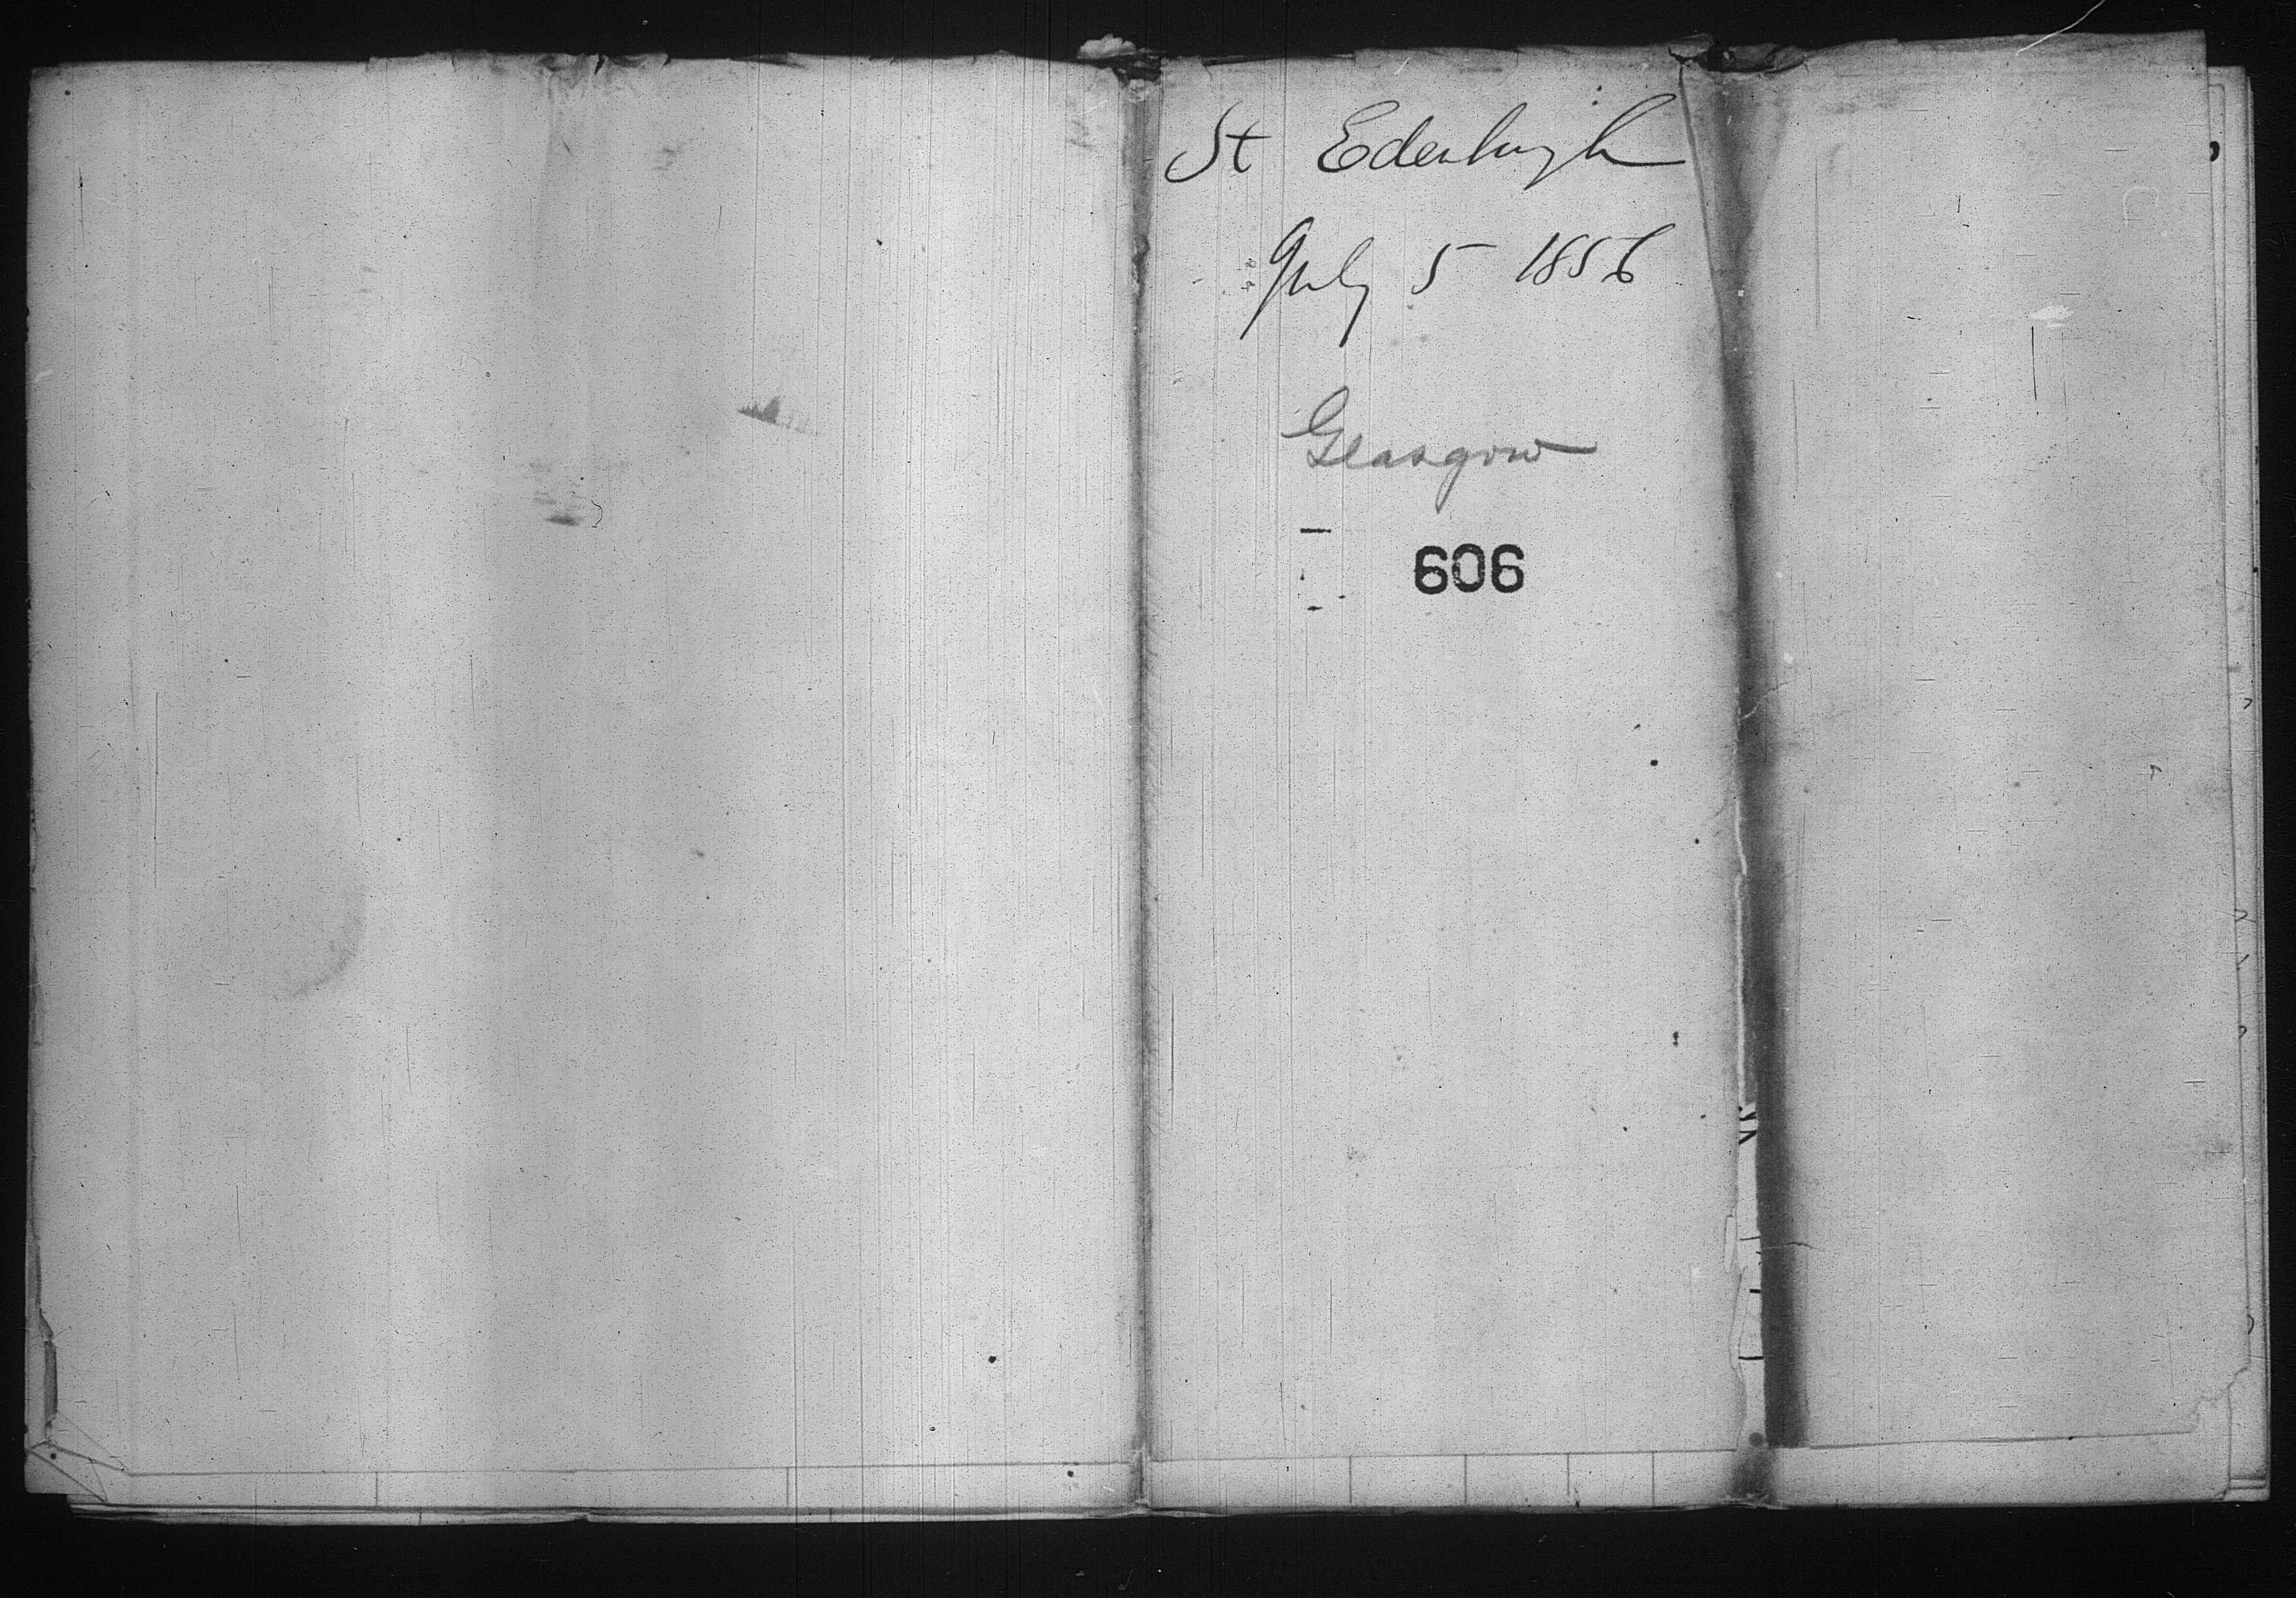 St Edenburgh
July 5 1856
Glasgow
606